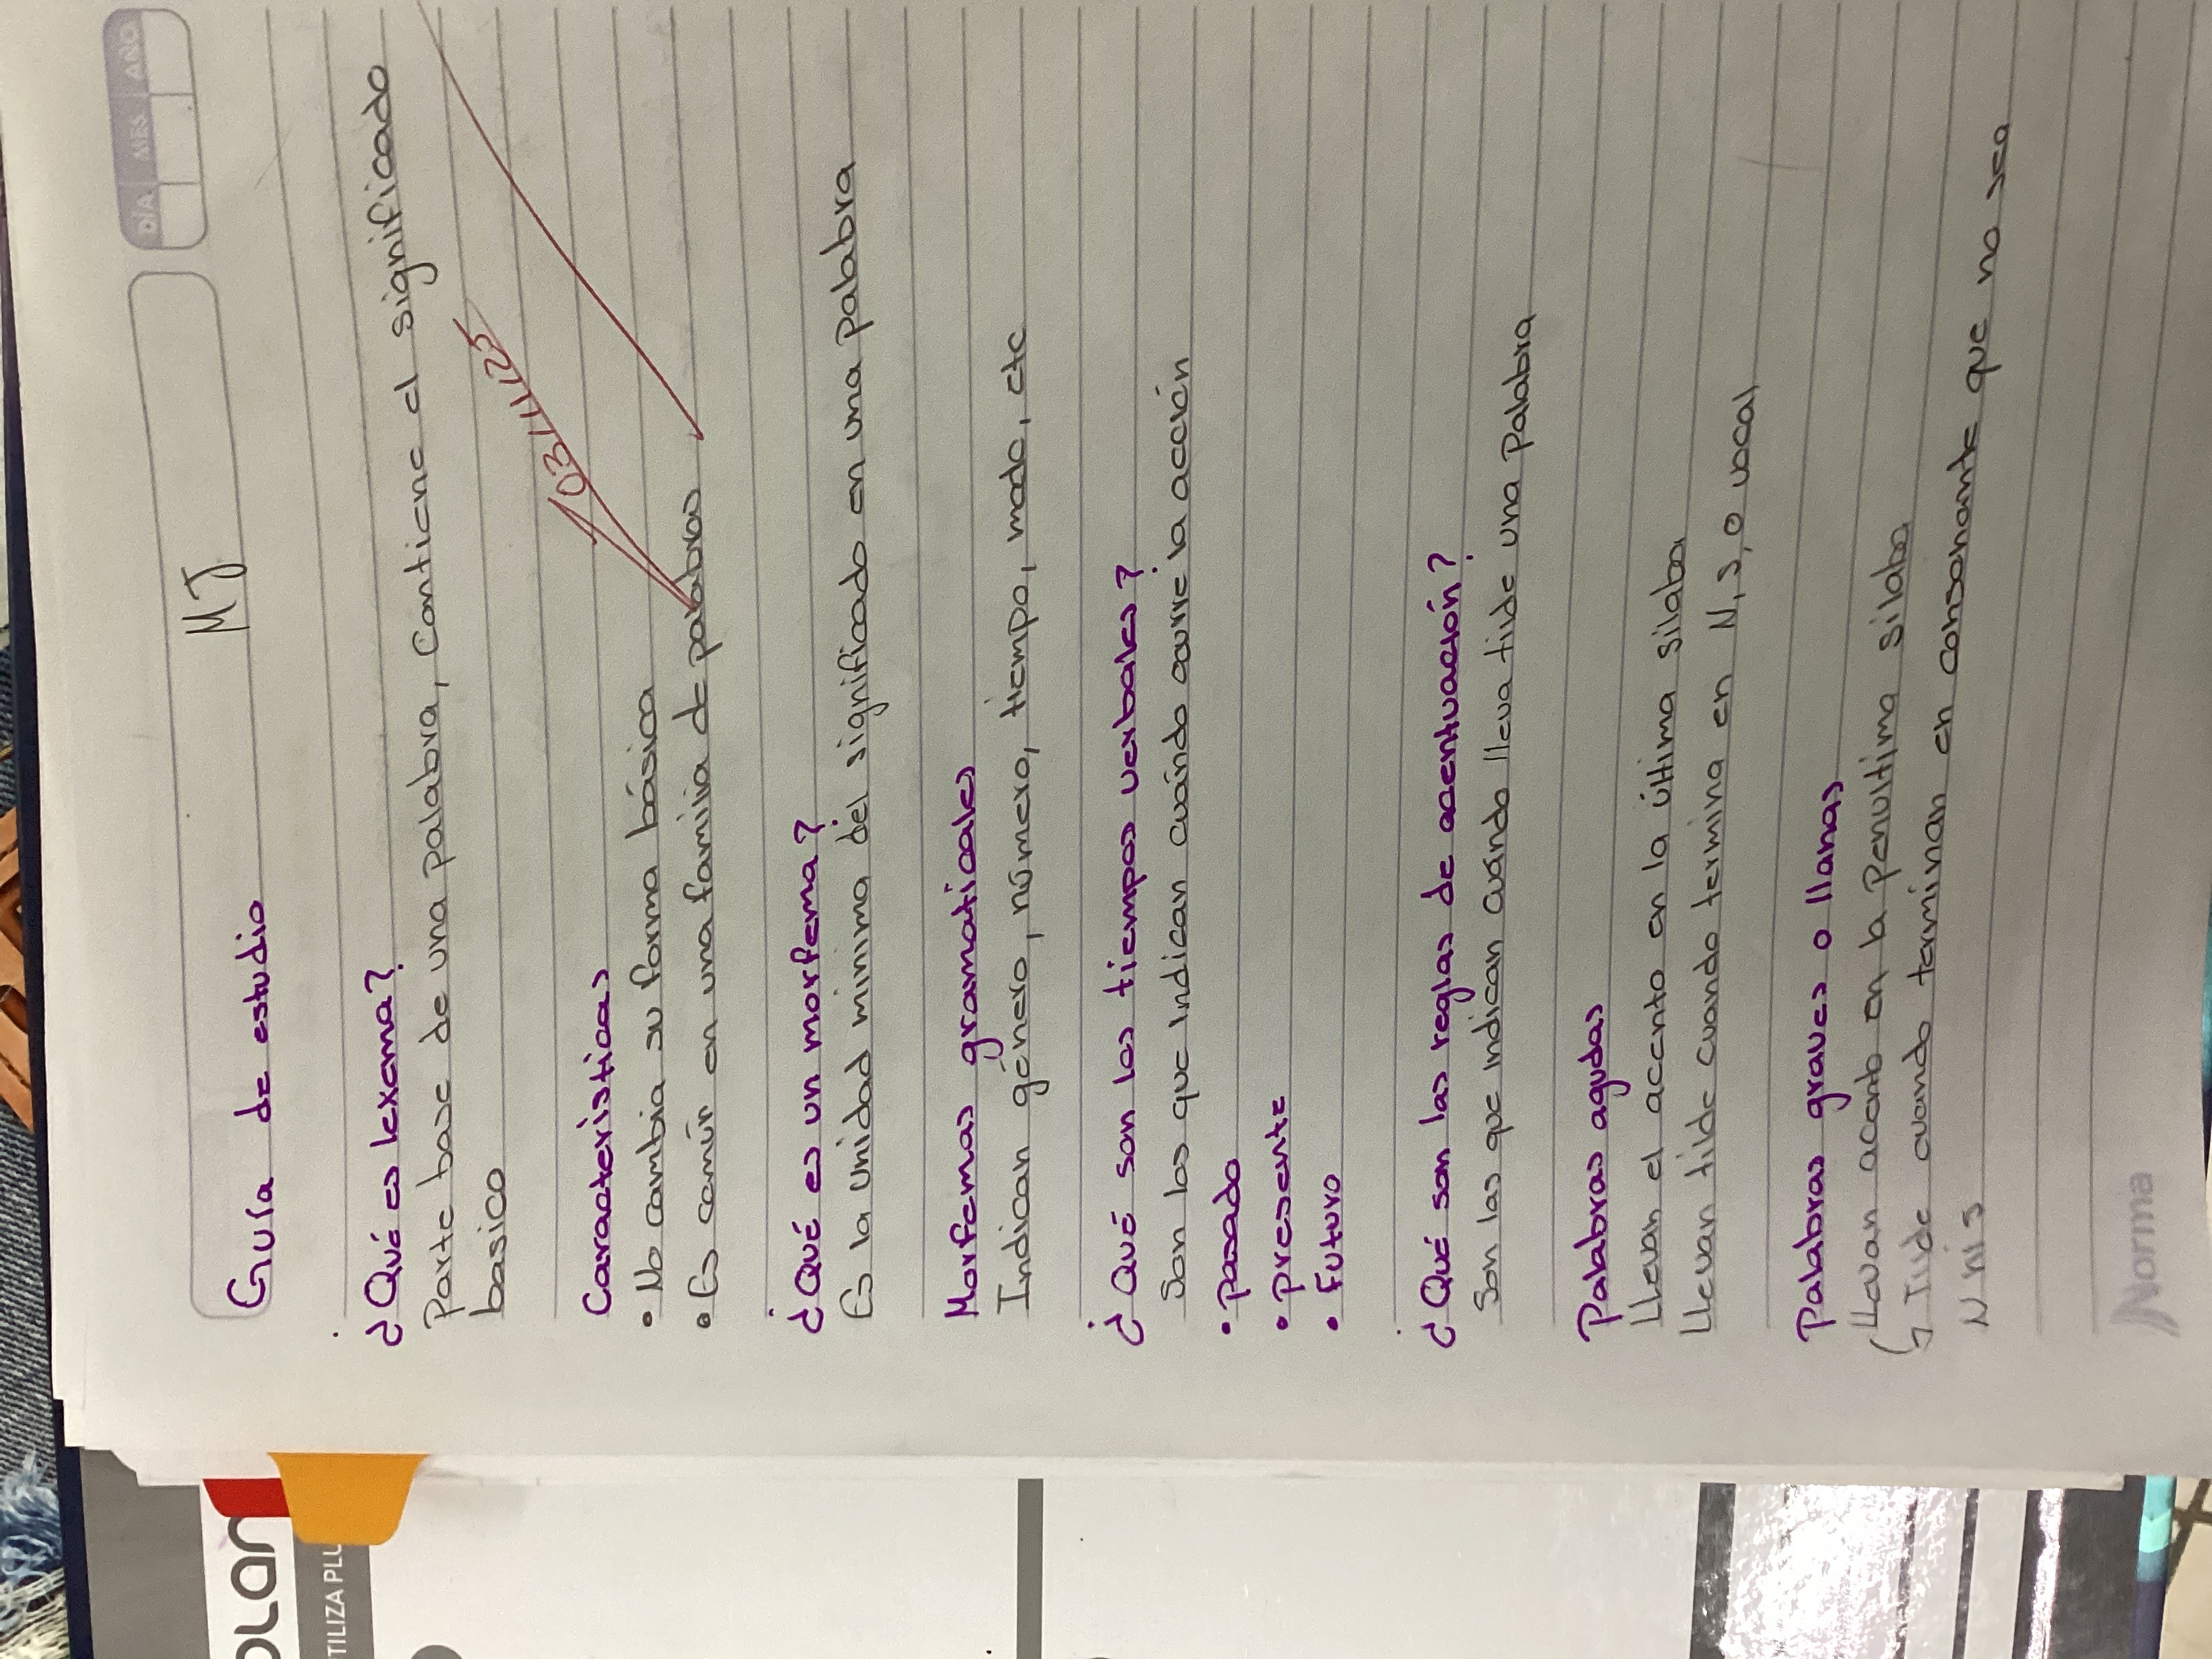 DÍA MES AÑO
Guía de estudio MJ
¿Qué es lexema?
Parte base de una palabra, Contiene el significado
basico
03/11/25
Caracteristicas
• No cambia su forma básica
• Es común en una familia de palabras
¿Qué es un morfema?
Es la unidad minima del significado en una palabra
Morfemas gramaticales
Indican género, número, tiempo, modo, etc
¿Qué son los tiempos verbales?
Son los que indican cuándo ocurre la acción
• Pasado
• presente
• Futuro
¿Qué son las reglas de acentuación?
Son las que indican cuándo lleva tilde una Palabra
Palabras agudas
Llevan el accento en la última silaba
Llevan tilde cuando termina en N, s, o vocal
Palabras graves o llanas
Llevan acento en la Penultima silaba
Tilde cuando terminan en consonante que no sea
N ni s
Norma
OLAR
TILIZA PLU